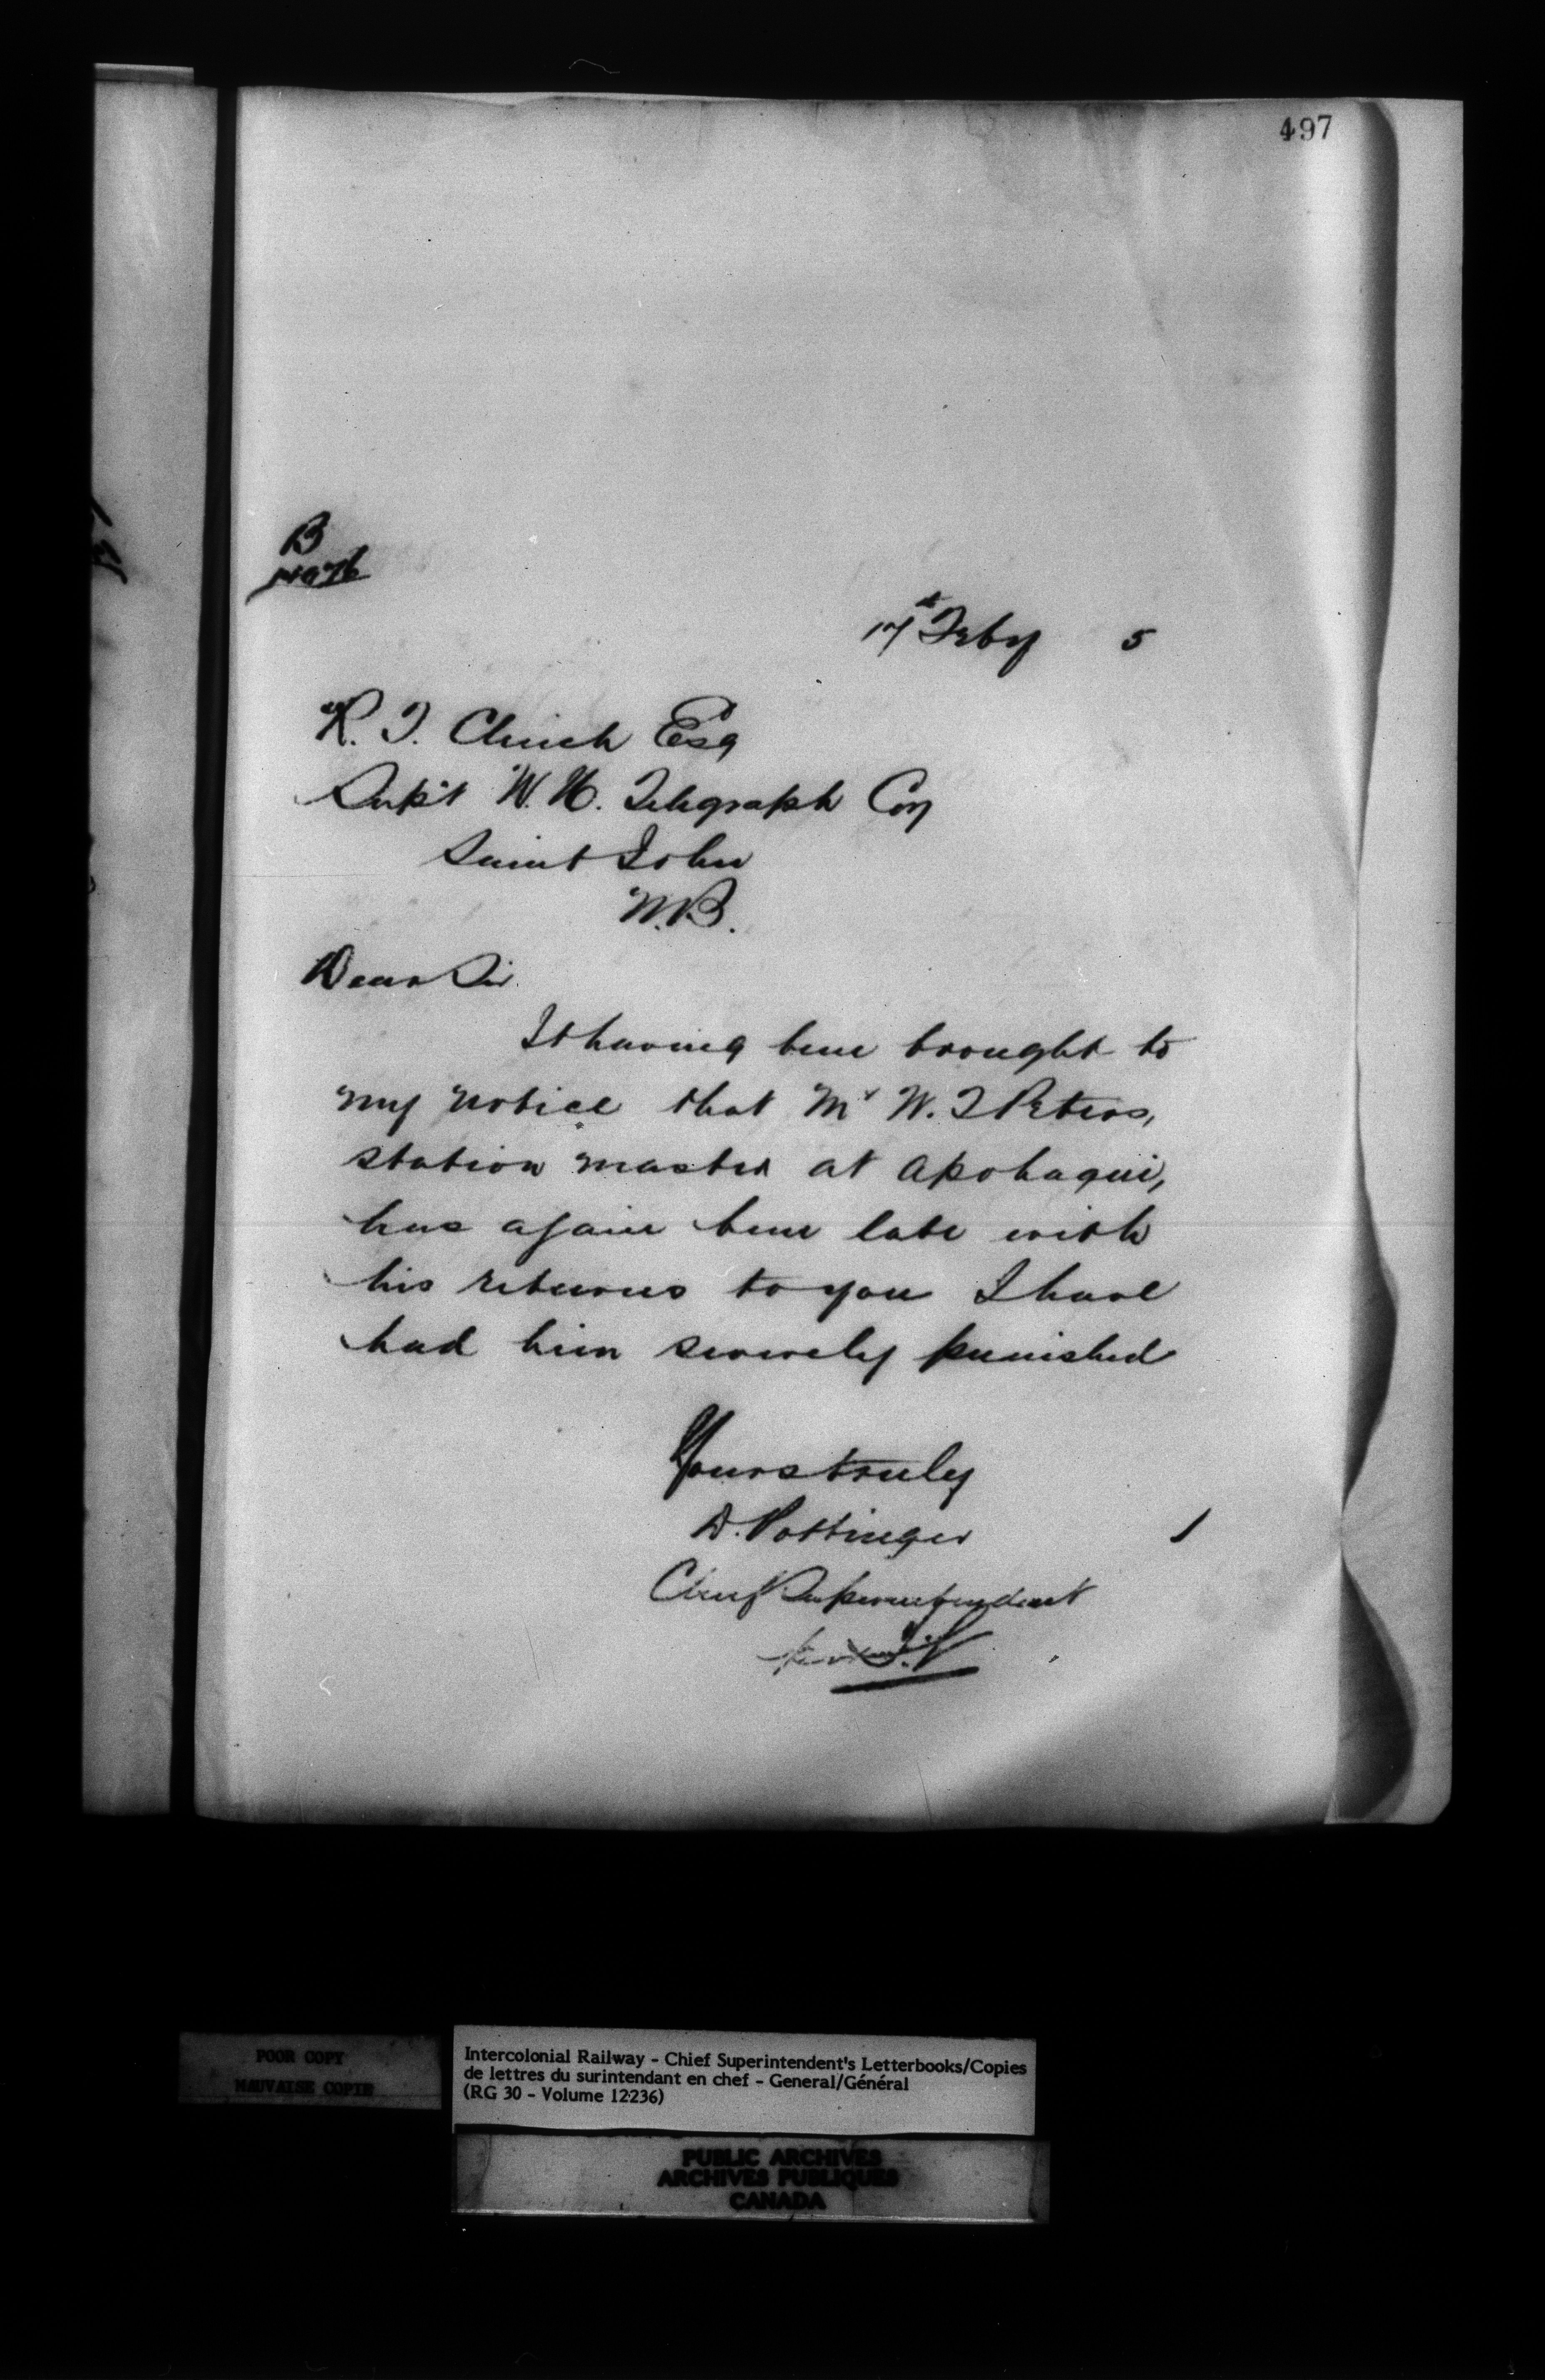 497
B
17th Feby 5
R. T. Clinch Esq
Supt W. U. Telegraph Coy
Saint John
N.B.
Dear Sir.
It having been brought to
my notice that Mr W. T Peters,
station master at Apohaqui,
has again been late with
his returns to you I have
had him severely punished
Yours truly
D. Pottinger
Chief Superintendent
POOR COPY
MAUVAISE COPIE
Intercolonial Railway - Chief Superintendent's Letterbooks/Copies
de lettres du surintendant en chef - General/Général
(RG 30 - Volume 12236)
PUBLIC ARCHIVES
ARCHIVES PUBLIQUES
CANADA